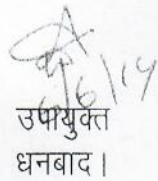 6/6/14
उपायुक्त
धनबाद।